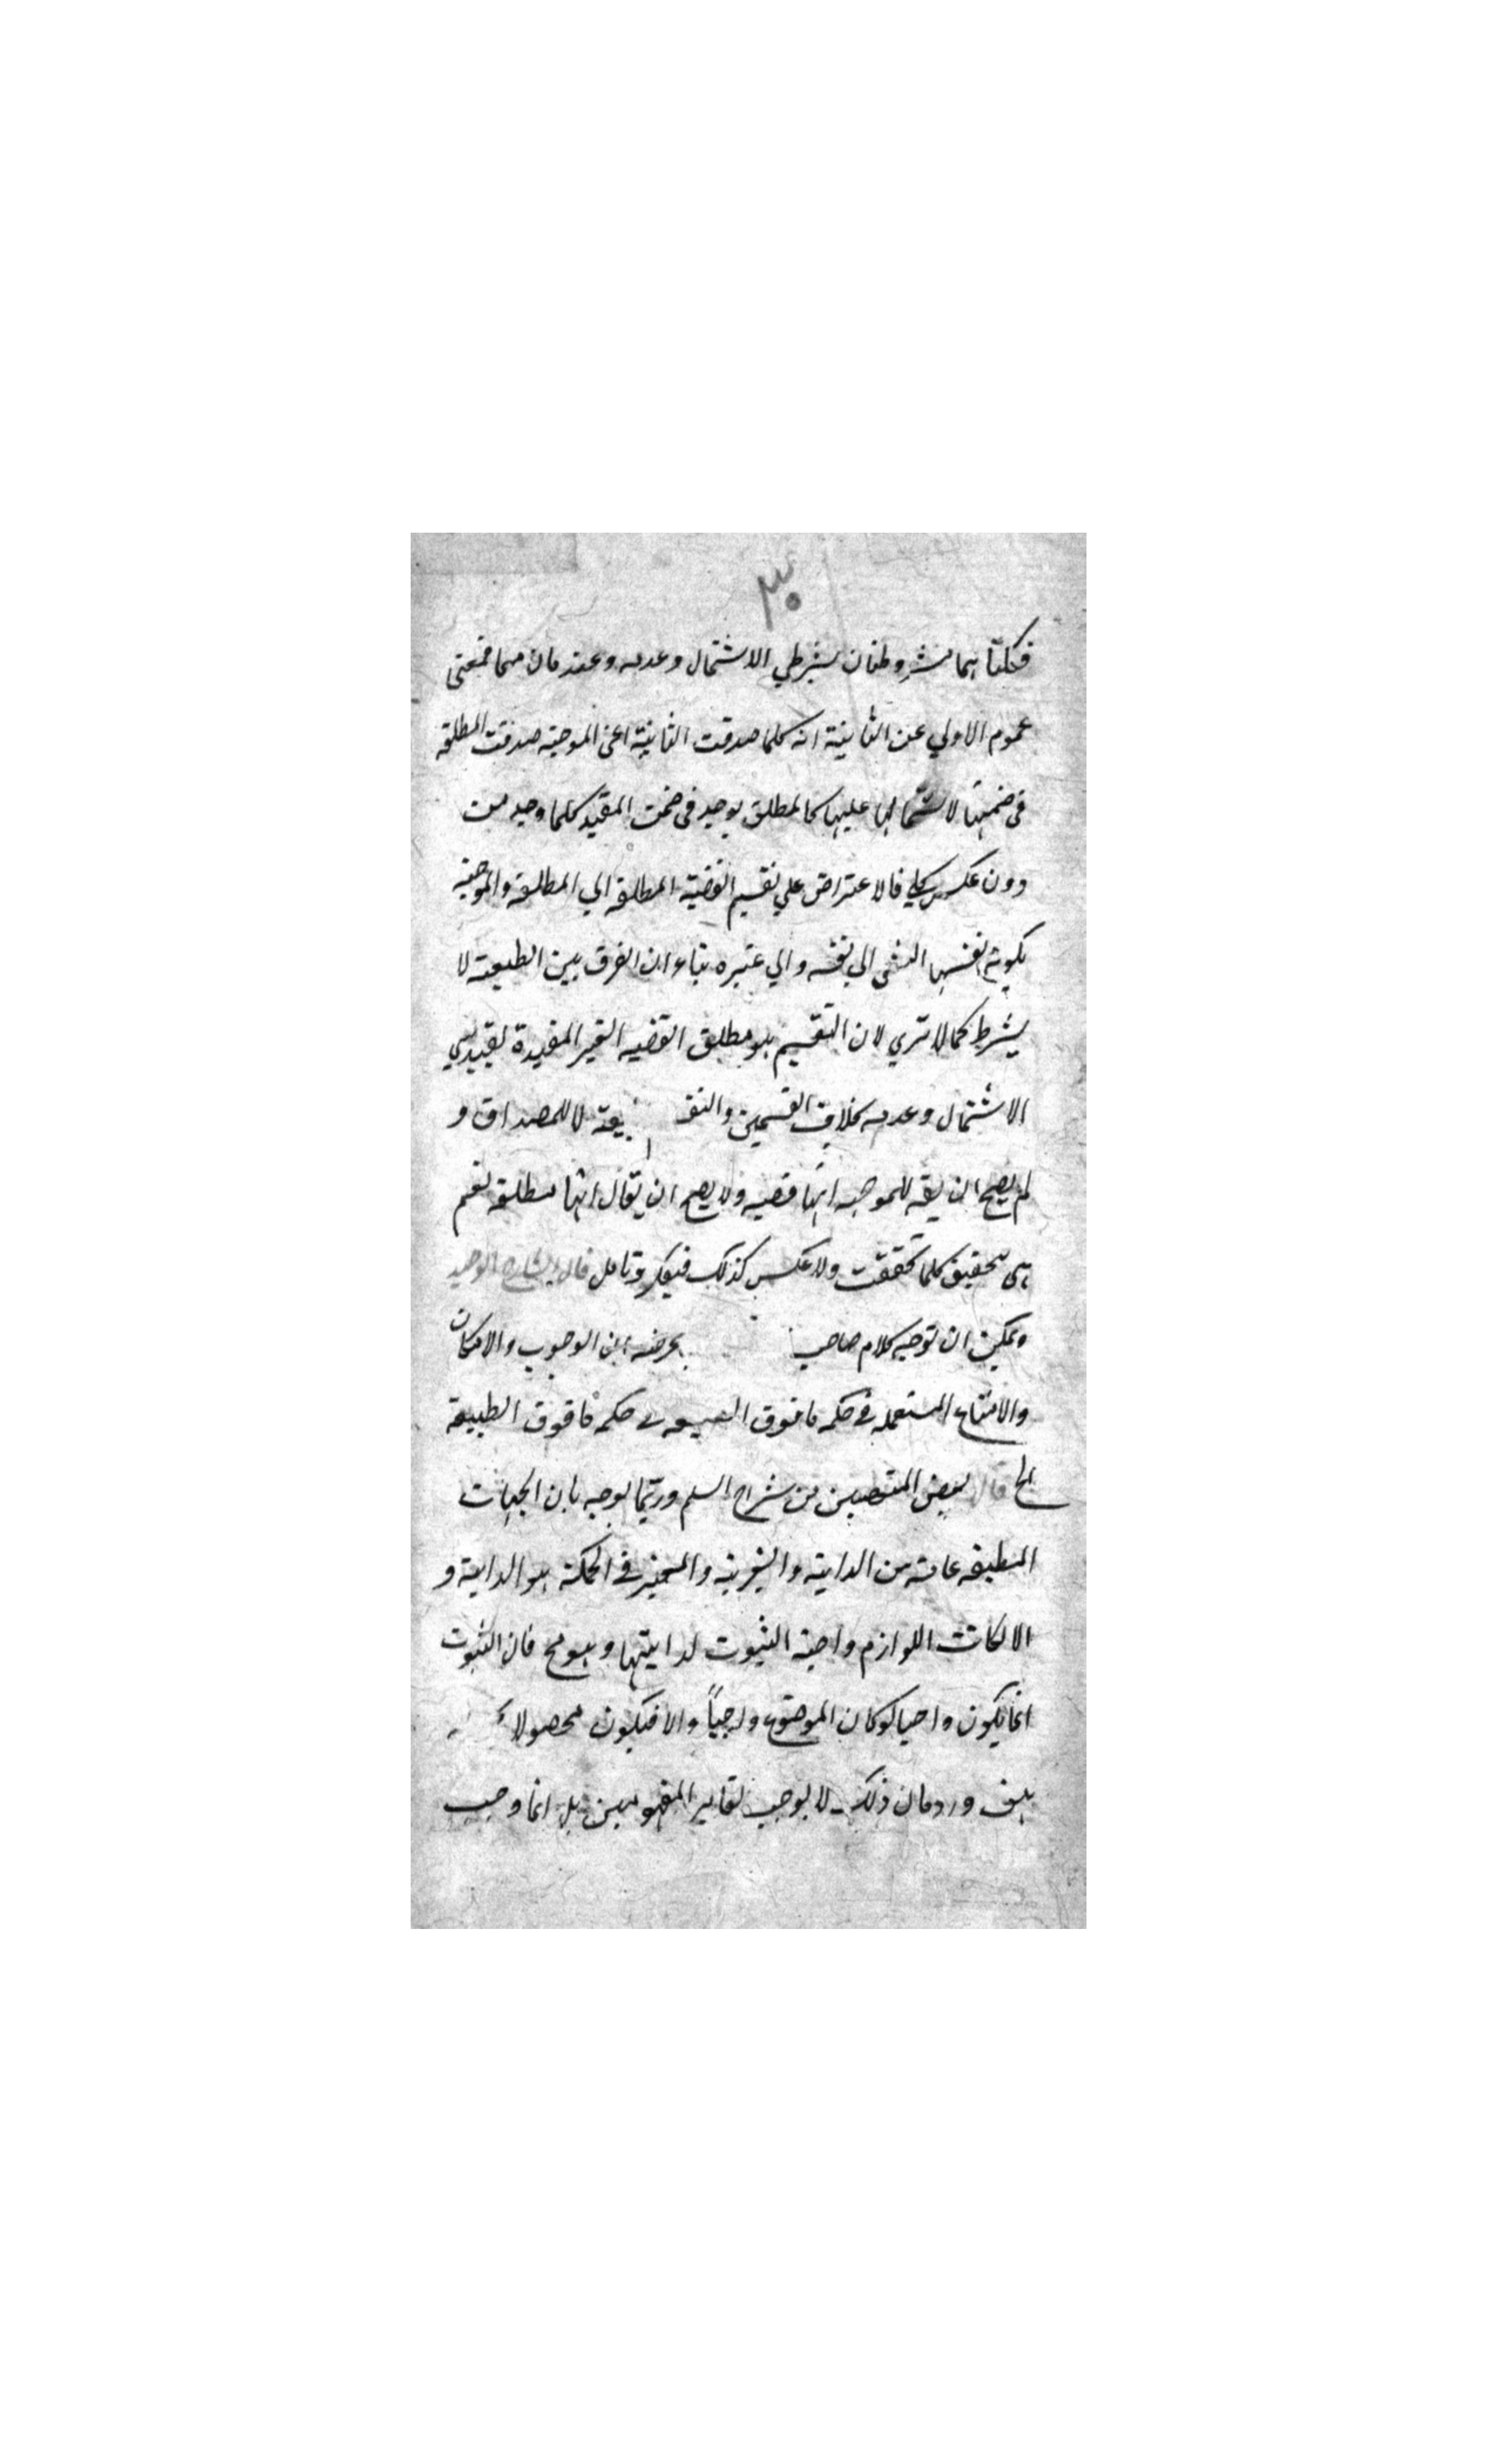 ٣٠
فكلتا هما مشروطتان بشرطي الاشتمال وعدمه وعند فمعنى
عموم الاولي عن الثانية انه كلما صدقت الثانية اعنى الموجهة صدقت المطلقة
فى ضمنها لاشتمالها عليها كالمطلق يوجد فى ضمن المقيد كلما وجد من
دون عكس كلي فالاعتراض علي تقسيم القضية المطلقة الي المطلقة والموجهة
بكونه تقسيم الشى الى نفسه والي غيره بناء ان الفرق بين الطبيعة لا
بشرط كما لا تري لان التقسيم هو مطلق القضيه الغير المقيدة بقيدي
الاشتمال وعدمه بخلاف القسمين لا للمصداق و
لم يصح ان يقه للموجهه انها قضيه ولا يصح ان يقال انها مطلقه نعم
هى تحقيق كلما تحققت ولا عكس كذلك فتفكر وتامل قال الشارح الوحيد
ويمكن ان توجيه كلام صاحب ان الوجوب والامكان
والامتناع المستعمله في حكمه ما فوق حكمه ما فوق الطبيعة
الخ قال بعض المتعصبين من شراح السلم وربما يوجه بان الجهات
المنطقيه عامة من الذاتية والغيرية والمعتبر في الحكمة هو الذاتية و
الا لكانت اللوازم واجبة الثبوت لذاتيتها وهو مح فان الثبوت
انما يكون واجبا لو كان الموضوع واجباً والا فيكون
هف ورد بان ذلك لا يوجب تغاير المفهومين بل انما وجب